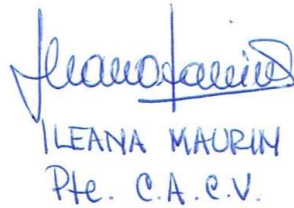 ILEANA MAURIN
Pte. C.A.C.V.